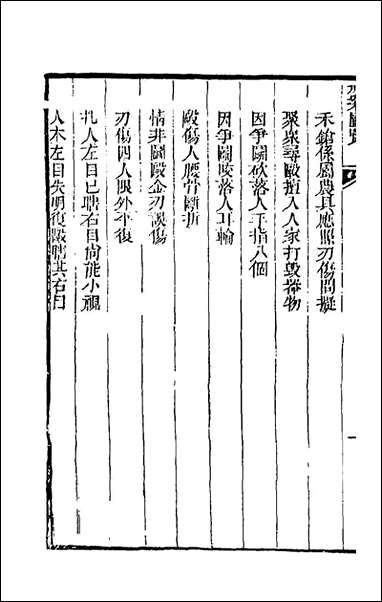 禾鎗係屬農具應照刃傷問擬
聚衆尋毆擅入人家打毀搶物
因爭鬭砍落人手指八個
因爭鬭咬落人耳輪
毆傷人腰骨斷折
情非鬭毆金刃誤傷
刃傷四人限外平復
扎人左目已瞎右目尚能小視
人本左目失明復毆瞎其右目